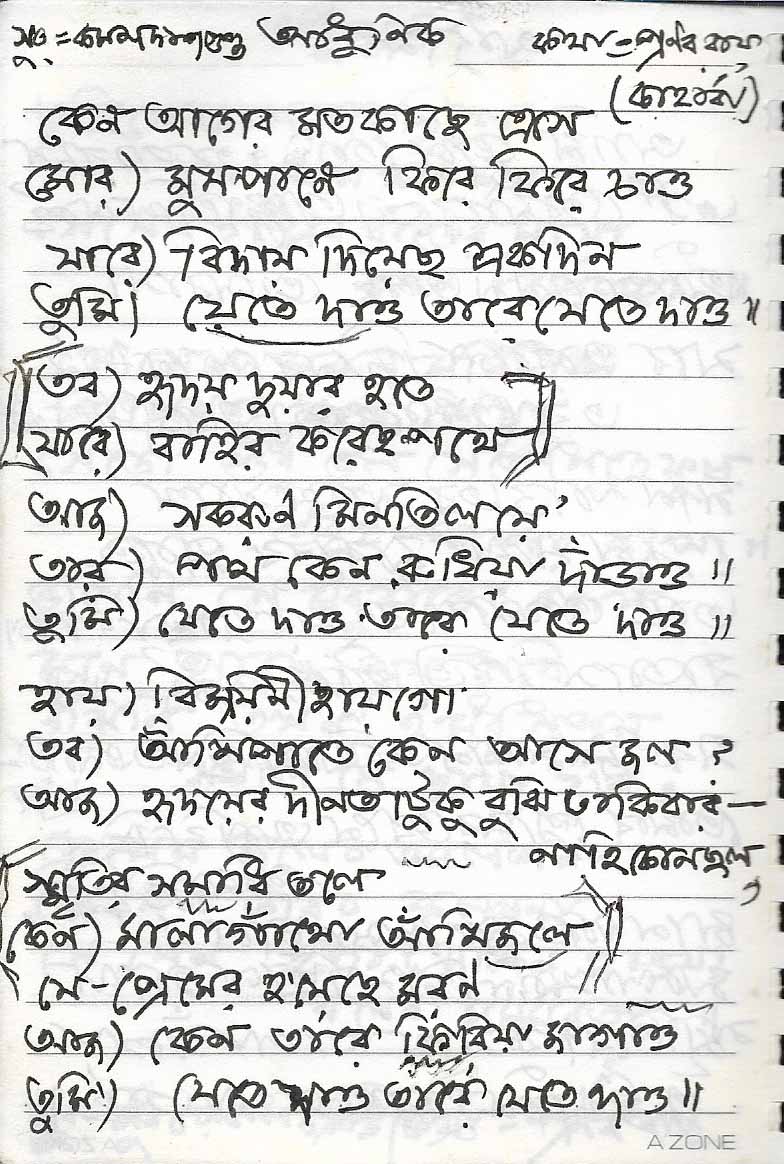 সুর = কমল দাশগুপ্ত আধুনিক কথা = প্রণব রায়
(কাহারবা)
কেন আগের মত কাছে এসে
মোর) মুখপানে ফিরে ফিরে চাও
যারে) বিদায় দিয়েছ একদিন
তুমি) যেতে দাও তারে যেতে দাও ॥
তব) হৃদয় দুয়ার হতে
যারে) বাহির করেছ পথে
আজ) সকরুন মিনতি লয়ে
তার) পথ কেন রুধিয়া দাঁড়াও ॥
তুমি) যেতে দাও তারে যেতে দাও ॥
হায়) বিজয়িনী হায় গো
তব) আঁখিপাতে কেন আসে জল ?
আজ) হৃদয়ের দীনতাটুকু বুঝি ঢাকিবার —
নাহি কোন ছল,
স্মৃতির সমাধি তলে
কেন) মালা গাঁথো আঁখিজলে
যে - প্রেমের হয়েছে মরন
আজ) কেন তারে ফিরিয়া জাগাও
তুমি) যেতে দাও তারে যেতে দাও ॥
A ZONE